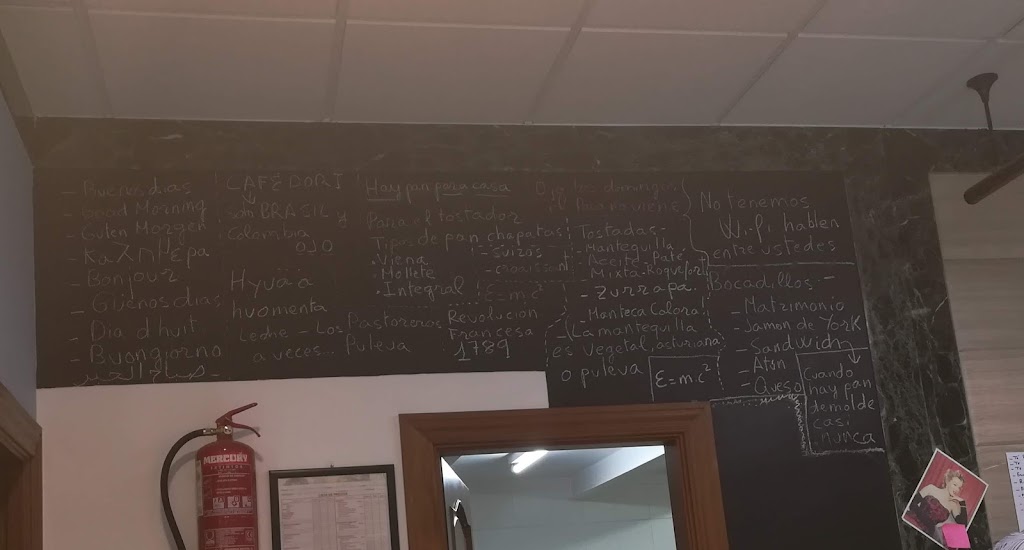 - Buenos dias
- Good Morning
- Guten Morgen
- Καλημέρα
- Bonjour
- Güenos dias
- Dia d huit
- Buongiorno
صباح الخير -
CAFÉ DORI
Solo BRASIL y
Colombia
OJO
Hyvää
huomenta
Leche - Los Pastoreros
a veces... Puleva
Hay pan para casa
Para el tostador
Tipos de pan chapatas
. Viena
. Mollete
. Integral
- suizos
- croaissant
E=mc²
Revolucion
Francesa
1789
Ojo los domingos
Tostadas-
- Mantequilla
- Aceite - Paté
- Mixta-Roquefort
- Zurrapa
- Manteca Colora
(La mantequilla
es Vegetal, asturiana
o puleva
E=m.c²
No tenemos
Wi-fi hablen
entre ustedes
Bocadillos -
- Matrimonio
- Jamon de York
- Sandwich
- Atun
- Queso
Cuando
hay pan
demolde
casi
nunca
MERCURY